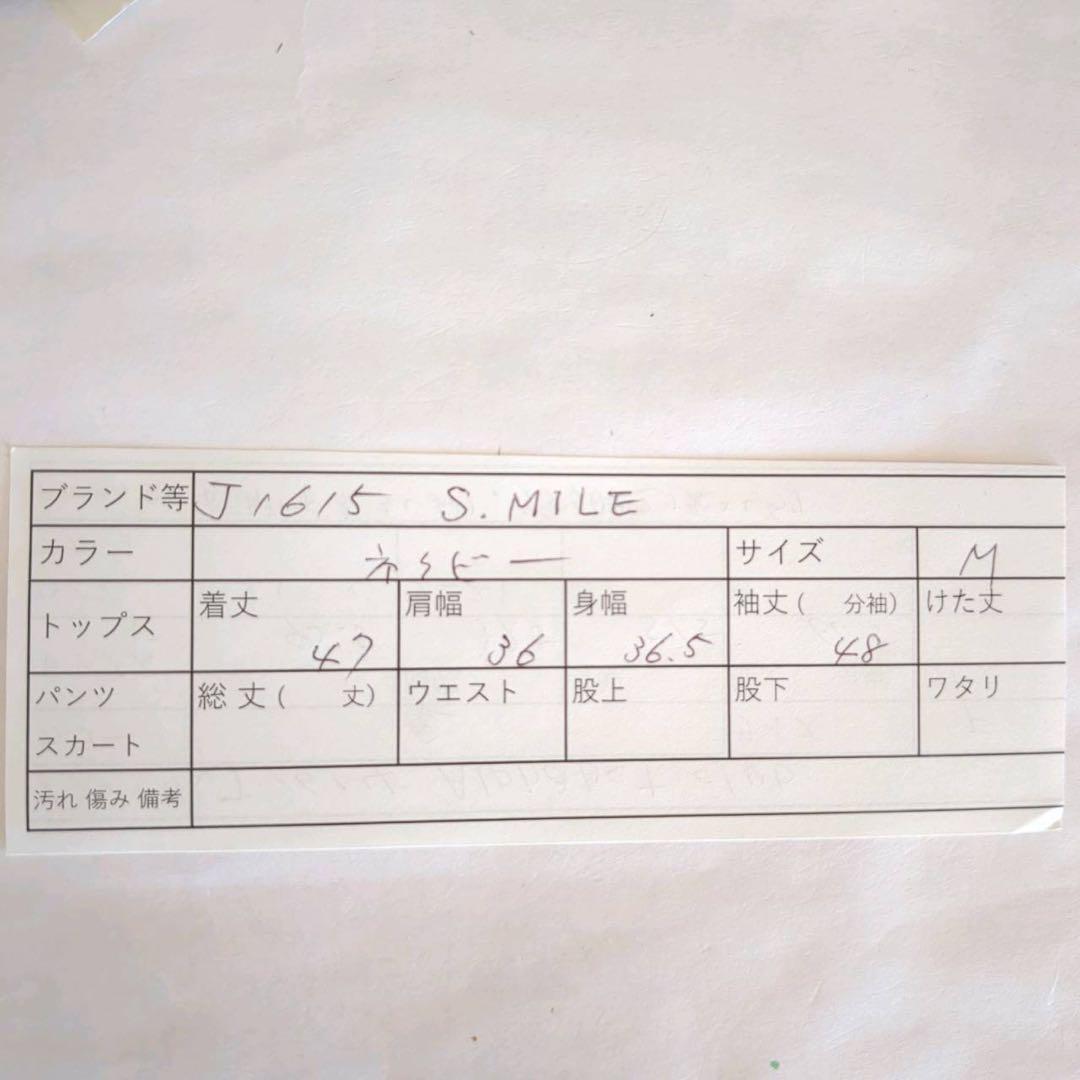 ブランド等 J1615 S.MILE
カラー ネイビー サイズ M
トップス 着丈 47 肩幅 36 身幅 36.5 袖丈( 分袖) 48 けた丈
パンツ スカート 総丈( 丈) ウエスト 股上 股下 ワタリ
汚れ 傷み 備考